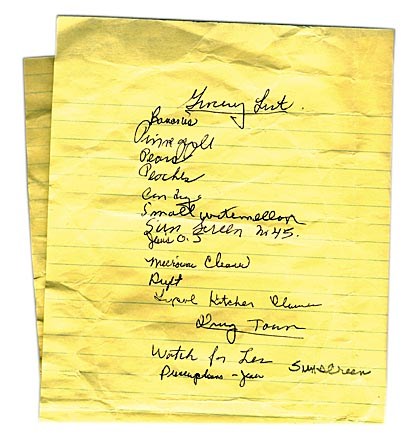 Grocery List
Bananas
Pinneapple
Pears
Peaches
Candy
Small watermellon
Sun Screen 45.
Jean O.J
Microwave Cleaner
Drift
Liquid Kitchen Cleaner
Drug Town
Watch for Les Sunscreen
Prescriptions - Jean